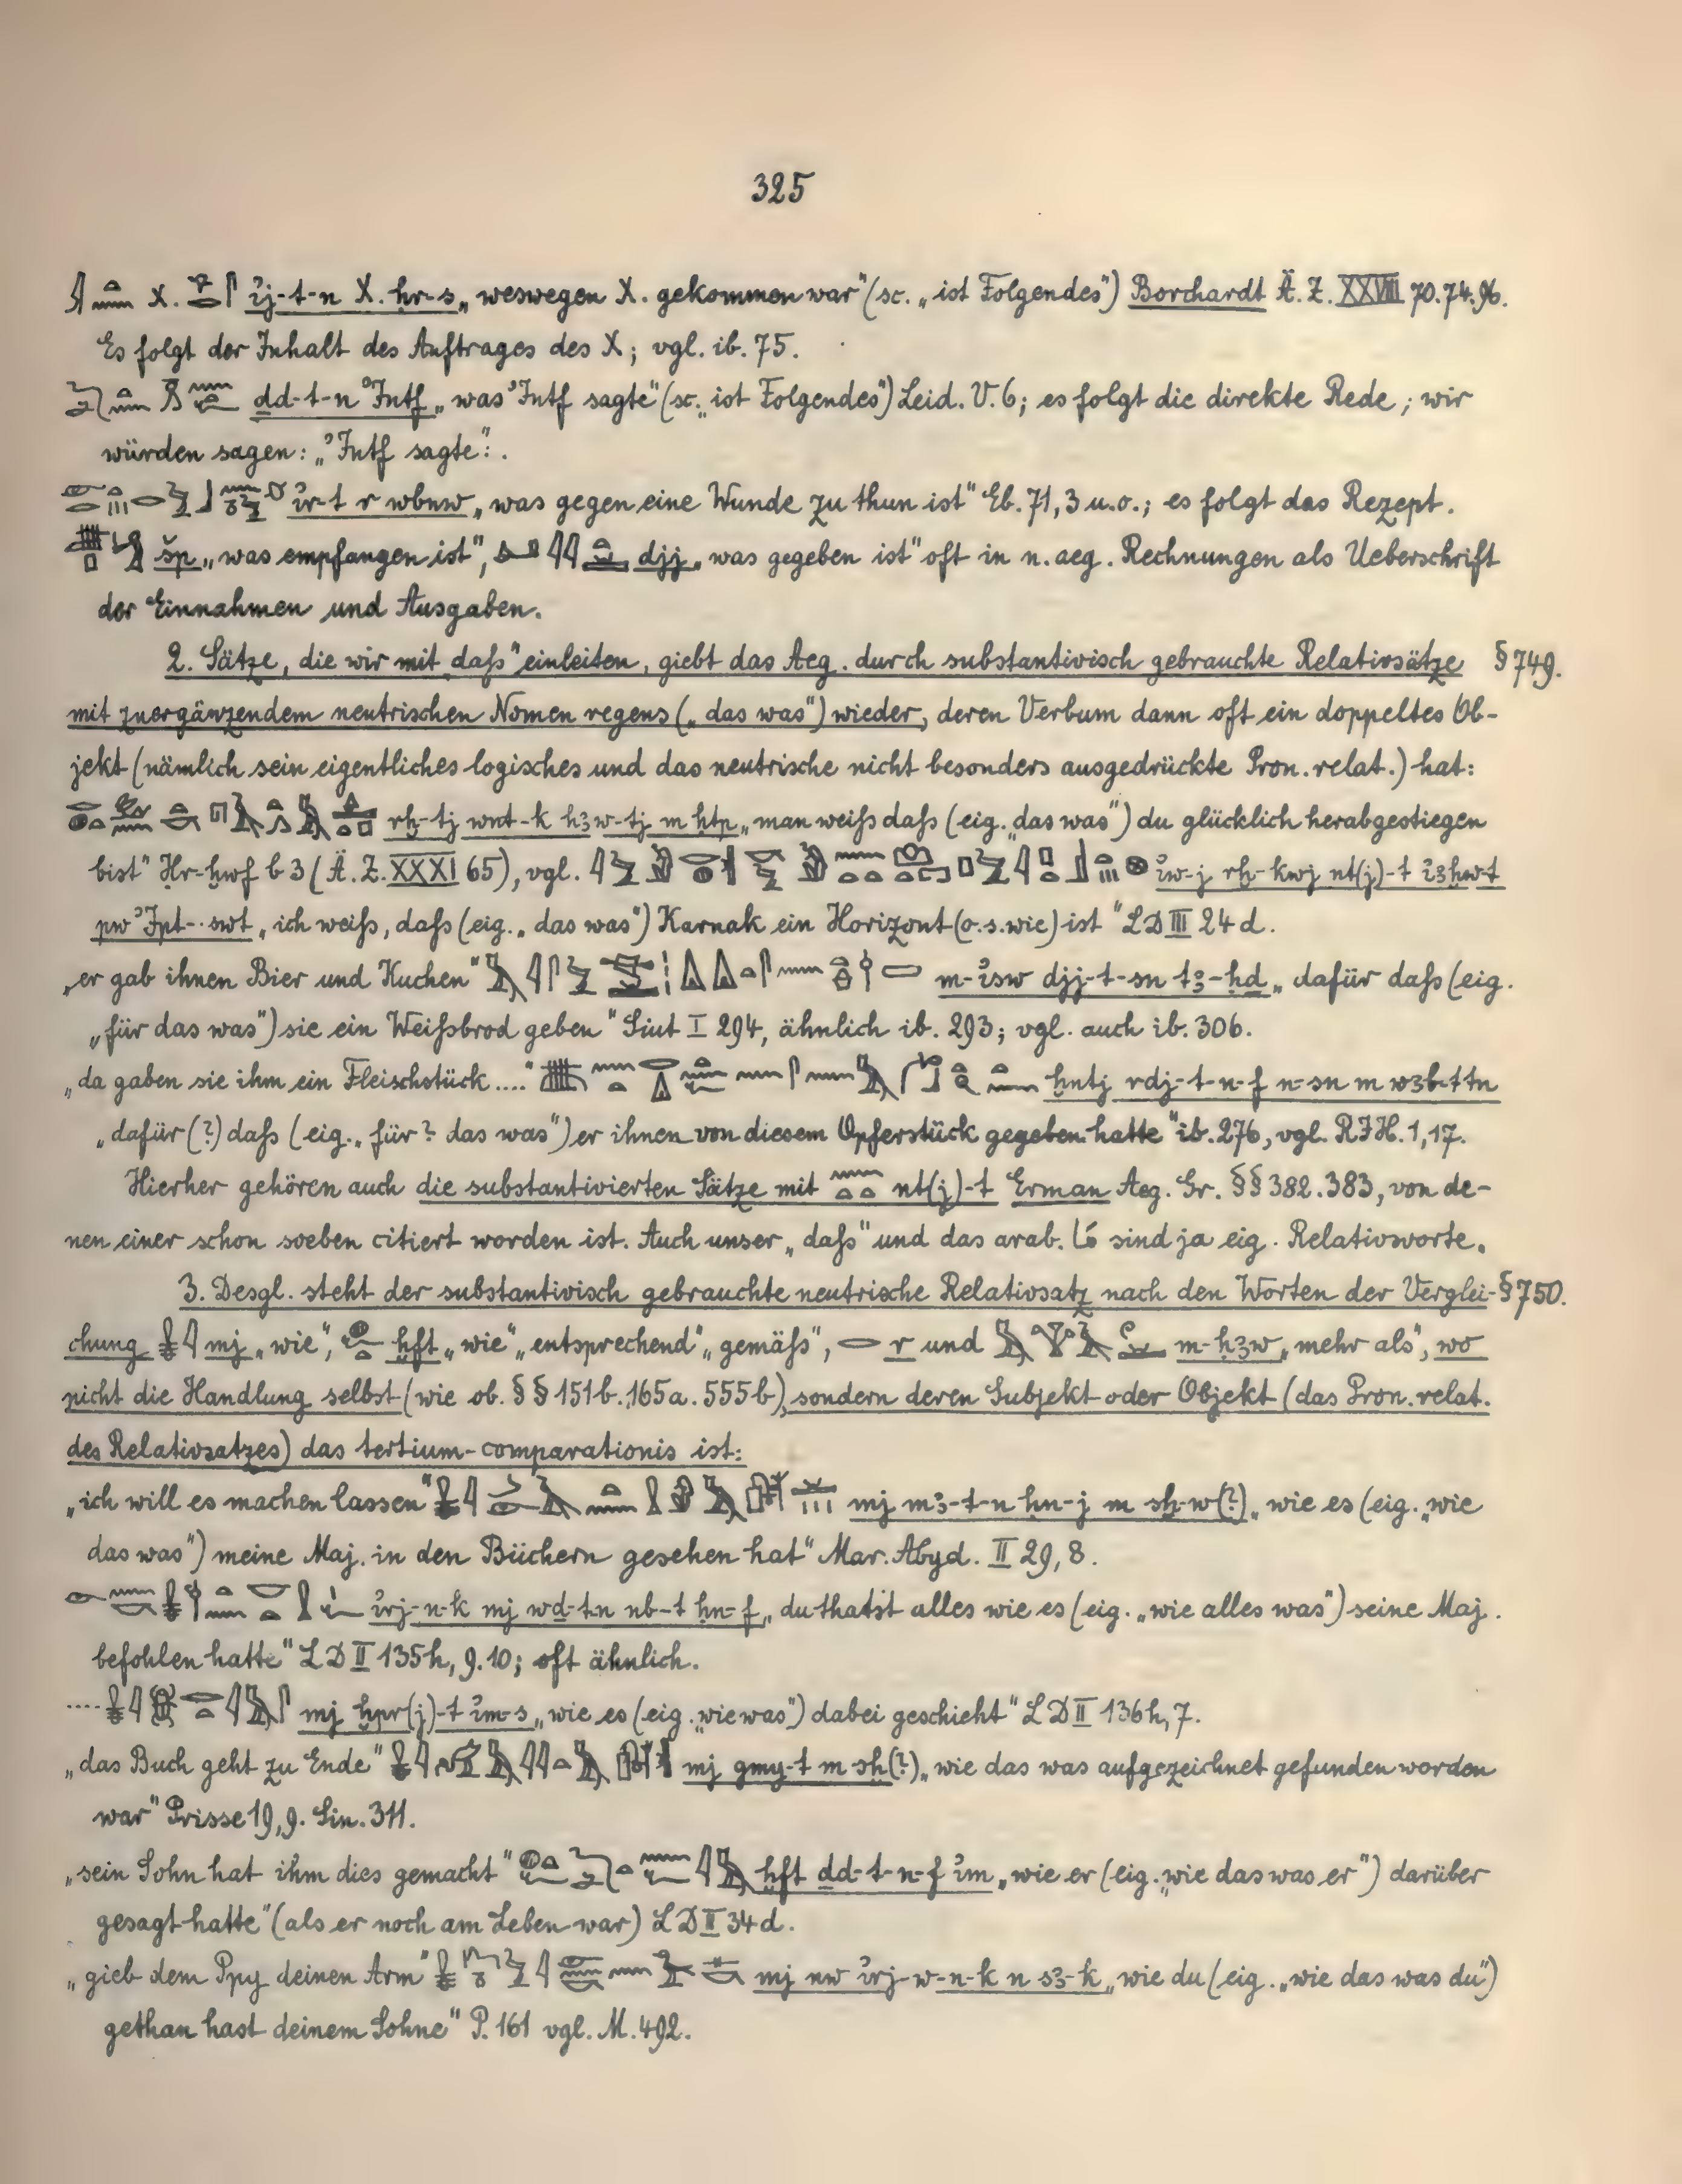 325
X. ı͗j-t-n X. ḥr-s „weswegen X. gekommen war" (sc. „ist Folgendes") Borchardt Ä. Z. XXVIII 70. 74. 96.
Es folgt der Inhalt des Auftrages des X; vgl. ib. 75.
ḏd-t-n ʾIntf „was ʾIntf sagte" (sc. „ist Folgendes") Leid. V. 6; es folgt die direkte Rede; wir
würden sagen: „ʾIntf sagte":.
ı͗r-t r wbnw „was gegen eine Wunde zu thun ist" Eb. 71, 3 u. o.; es folgt das Rezept.
šp „was empfangen ist", djj „was gegeben ist" oft in n. aeg. Rechnungen als Ueberschrift
der Einnahmen und Ausgaben.
2. Sätze, die wir mit „daſs" einleiten, giebt das Aeg. durch substantivisch gebrauchte Relativsätze § 749.
mit zu ergänzendem neutrischen Nomen regens („das was") wieder, deren Verbum dann oft ein doppeltes Ob-
jekt (nämlich sein eigentliches logisches und das neutrische nicht besonders ausgedrückte Pron. relat.) hat:
rḫ-tj wnt-k hꜣw-tj m ḥtp „man weiſs daſs (eig. „das was") du glücklich herabgestiegen
bist" Ḥr-ḫwf b 3 (Ä. Z. XXXI 65), vgl. ı͗w-j rḫ-kwj nt(j)-t ı͗ꜣḫw-t
pw ʾIpt-swt „ich weiſs, daſs (eig. „das was") Karnak ein Horizont (o. s. wie) ist" LD III 24 d.
„er gab ihnen Bier und Kuchen" m-ı͗sw djj-t-sn tꜣ-ḥḏ „dafür daſs (eig.
„für das was") sie ein Weiſsbrod geben" Siut I 294, ähnlich ib. 293; vgl. auch ib. 306.
„da gaben sie ihm ein Fleischstück ...." ḫntj rdj-t-n-f n-sn m wꜣb-t tn
„dafür (?) daſs (eig. „für? das was") er ihnen von diesem Opferstück gegeben hatte" ib. 276, vgl. RIH. 1, 17.
Hierher gehören auch die substantivierten Sätze mit nt(j)-t Erman Aeg. Gr. §§ 382. 383, von de-
nen einer schon soeben citiert worden ist. Auch unser „daſs" und das arab. ما sind ja eig. Relativworte.
3. Desgl. steht der substantivisch gebrauchte neutrische Relativsatz nach den Worten der Verglei- § 750.
chung mj „wie", ḫft „wie" „entsprechend" „gemäſs", r und m-ḥꜣw „mehr als", wo
nicht die Handlung selbst (wie ob. §§ 151b. 165a. 555b), sondern deren Subjekt oder Objekt (das Pron. relat.
des Relativsatzes) das tertium-comparationis ist:
„ich will es machen lassen" mj mꜣ-t-n ḥn-j m sẖ-w(?) „wie es (eig. „wie
das was") meine Maj. in den Büchern gesehen hat" Mar. Abyd. II 29, 8.
ı͗rj-n-k mj wḏ-t-n nb-t ḥn-f „du thatst alles wie es (eig. „wie alles was") seine Maj.
befohlen hatte" LD II 135h, 9. 10; oft ähnlich.
.... mj ḫpr(j)-t ı͗m-s „wie es (eig. „wie was") dabei geschieht" LD II 136h, 7.
„das Buch geht zu Ende" mj gmy-t m sẖ(?) „wie das was aufgezeichnet gefunden worden
war" Prisse 19, 9. Sin. 311.
„sein Sohn hat ihm dies gemacht" ḫft ḏd-t-n-f ı͗m „wie er (eig. „wie das was er") darüber
gesagt hatte" (als er noch am Leben war) LD II 34 d.
„gieb dem Ppy deinen Arm" mj nw ı͗rj-w-n-k n sꜣ-k „wie du (eig. „wie das was du")
gethan hast deinem Sohne" P. 161 vgl. M. 492.